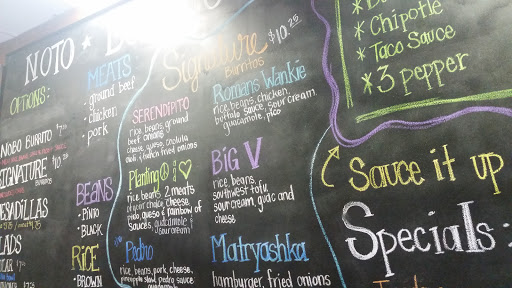 NOTO ★
OPTIONS:
NOBO BURRITO
SIGNATURE
BURRITOS
MEATS
- ground beef
- chicken
- pork
BEANS
- PINTO
- BLACK
RICE
- BROWN
Signature $10.25
Burritos
SERENDIPITO
rice, beans, ground
beef, onions
cheese, queso, cholula
fried onions
Planting
rice, beans, 2 meats
of your choice, cheese,
queso, & rainbow of
sauces, guacamole,
sour cream
Pedro
rice, beans, pork, cheese,
pineapple slaw, pedro sauce
Romans Wankie
rice, beans, chicken,
buffalo sauce, sour cream,
guacamole, pico
BiG V
rice, beans,
southwest tofu,
sour cream, guac and
cheese
Matryashka
hamburger, fried onions
* Chipotle
* Taco Sauce
* 3 pepper
Sauce it up
Specials: